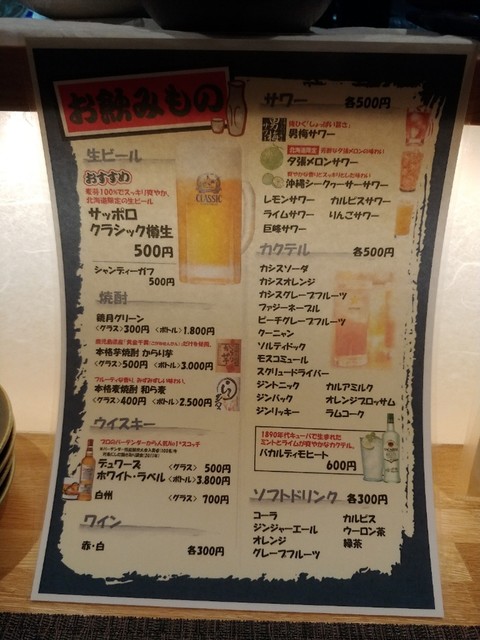 お飲みもの
生ビール
おすすめ
麦芽100%でスッキリ爽やか、
北海道限定の生ビール
サッポロ
クラシック樽生
500円
CLASSIC
シャンディーガフ
500円
焼酎
鏡月グリーン
<グラス>300円 <ボトル>1.800円
本格芋焼酎 からり芋
<グラス>500円 <ボトル>3.000円
フルーティな香り、みずみずしい味わい。
本格麦焼酎 和ら麦
<グラス>400円 <ボトル>2.500円
ウイスキー
"プロのバーテンダーから人気No.1"スコッチ
デュワーズ <グラス> 500円
ホワイト・ラベル <ボトル>3.800円
白州 <グラス> 700円
ワイン
赤・白 各300円
サワー 各500円
男梅サワー
北海道限定 芳醇な夕張メロンの味わい
夕張メロンサワー
爽やかな香りとスッキリとした味わい
沖縄シークヮーサーサワー
レモンサワー カルピスサワー
ライムサワー りんごサワー
巨峰サワー
カクテル 各500円
カシスソーダ
カシスオレンジ
カシスグレープフルーツ
ファジーネーブル
ピーチグレープフルーツ
クーニャン
ソルティドック
モスコミュール
スクリュードライバー
ジントニック カルアミルク
ジンバック オレンジブロッサム
ジンリッキー ラムコーク
1890年代キューバで生まれた
ミントとライムが爽やかなカクテル。
バカルディモヒート
600円
ソフトドリンク 各300円
コーラ カルピス
ジンジャーエール ウーロン茶
オレンジ 緑茶
グレープフルーツ